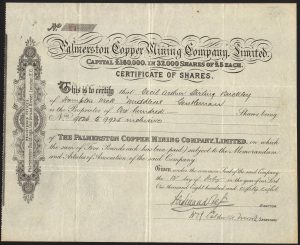 No.
Palmerston Copper Mining Company, Limited.
CAPITAL £160,000, IN 32,000 SHARES OF £5 EACH.
CERTIFICATE OF SHARES.
This is to certify that Cecil Arthur
of Hampton Wick Middlesex Gentleman
is the Proprietor of One hundred Shares being
Nos. to 9925 inclusive
OF THE PALMERSTON COPPER MINING COMPANY, LIMITED, on which
the sum of Five Pounds each has been paid, subject to the Memorandum
and Articles of Association of the said Company.
GIVEN under the common Seal of the said Company
the day of in the year of our Lord
One thousand Eight hundred and eighty eight